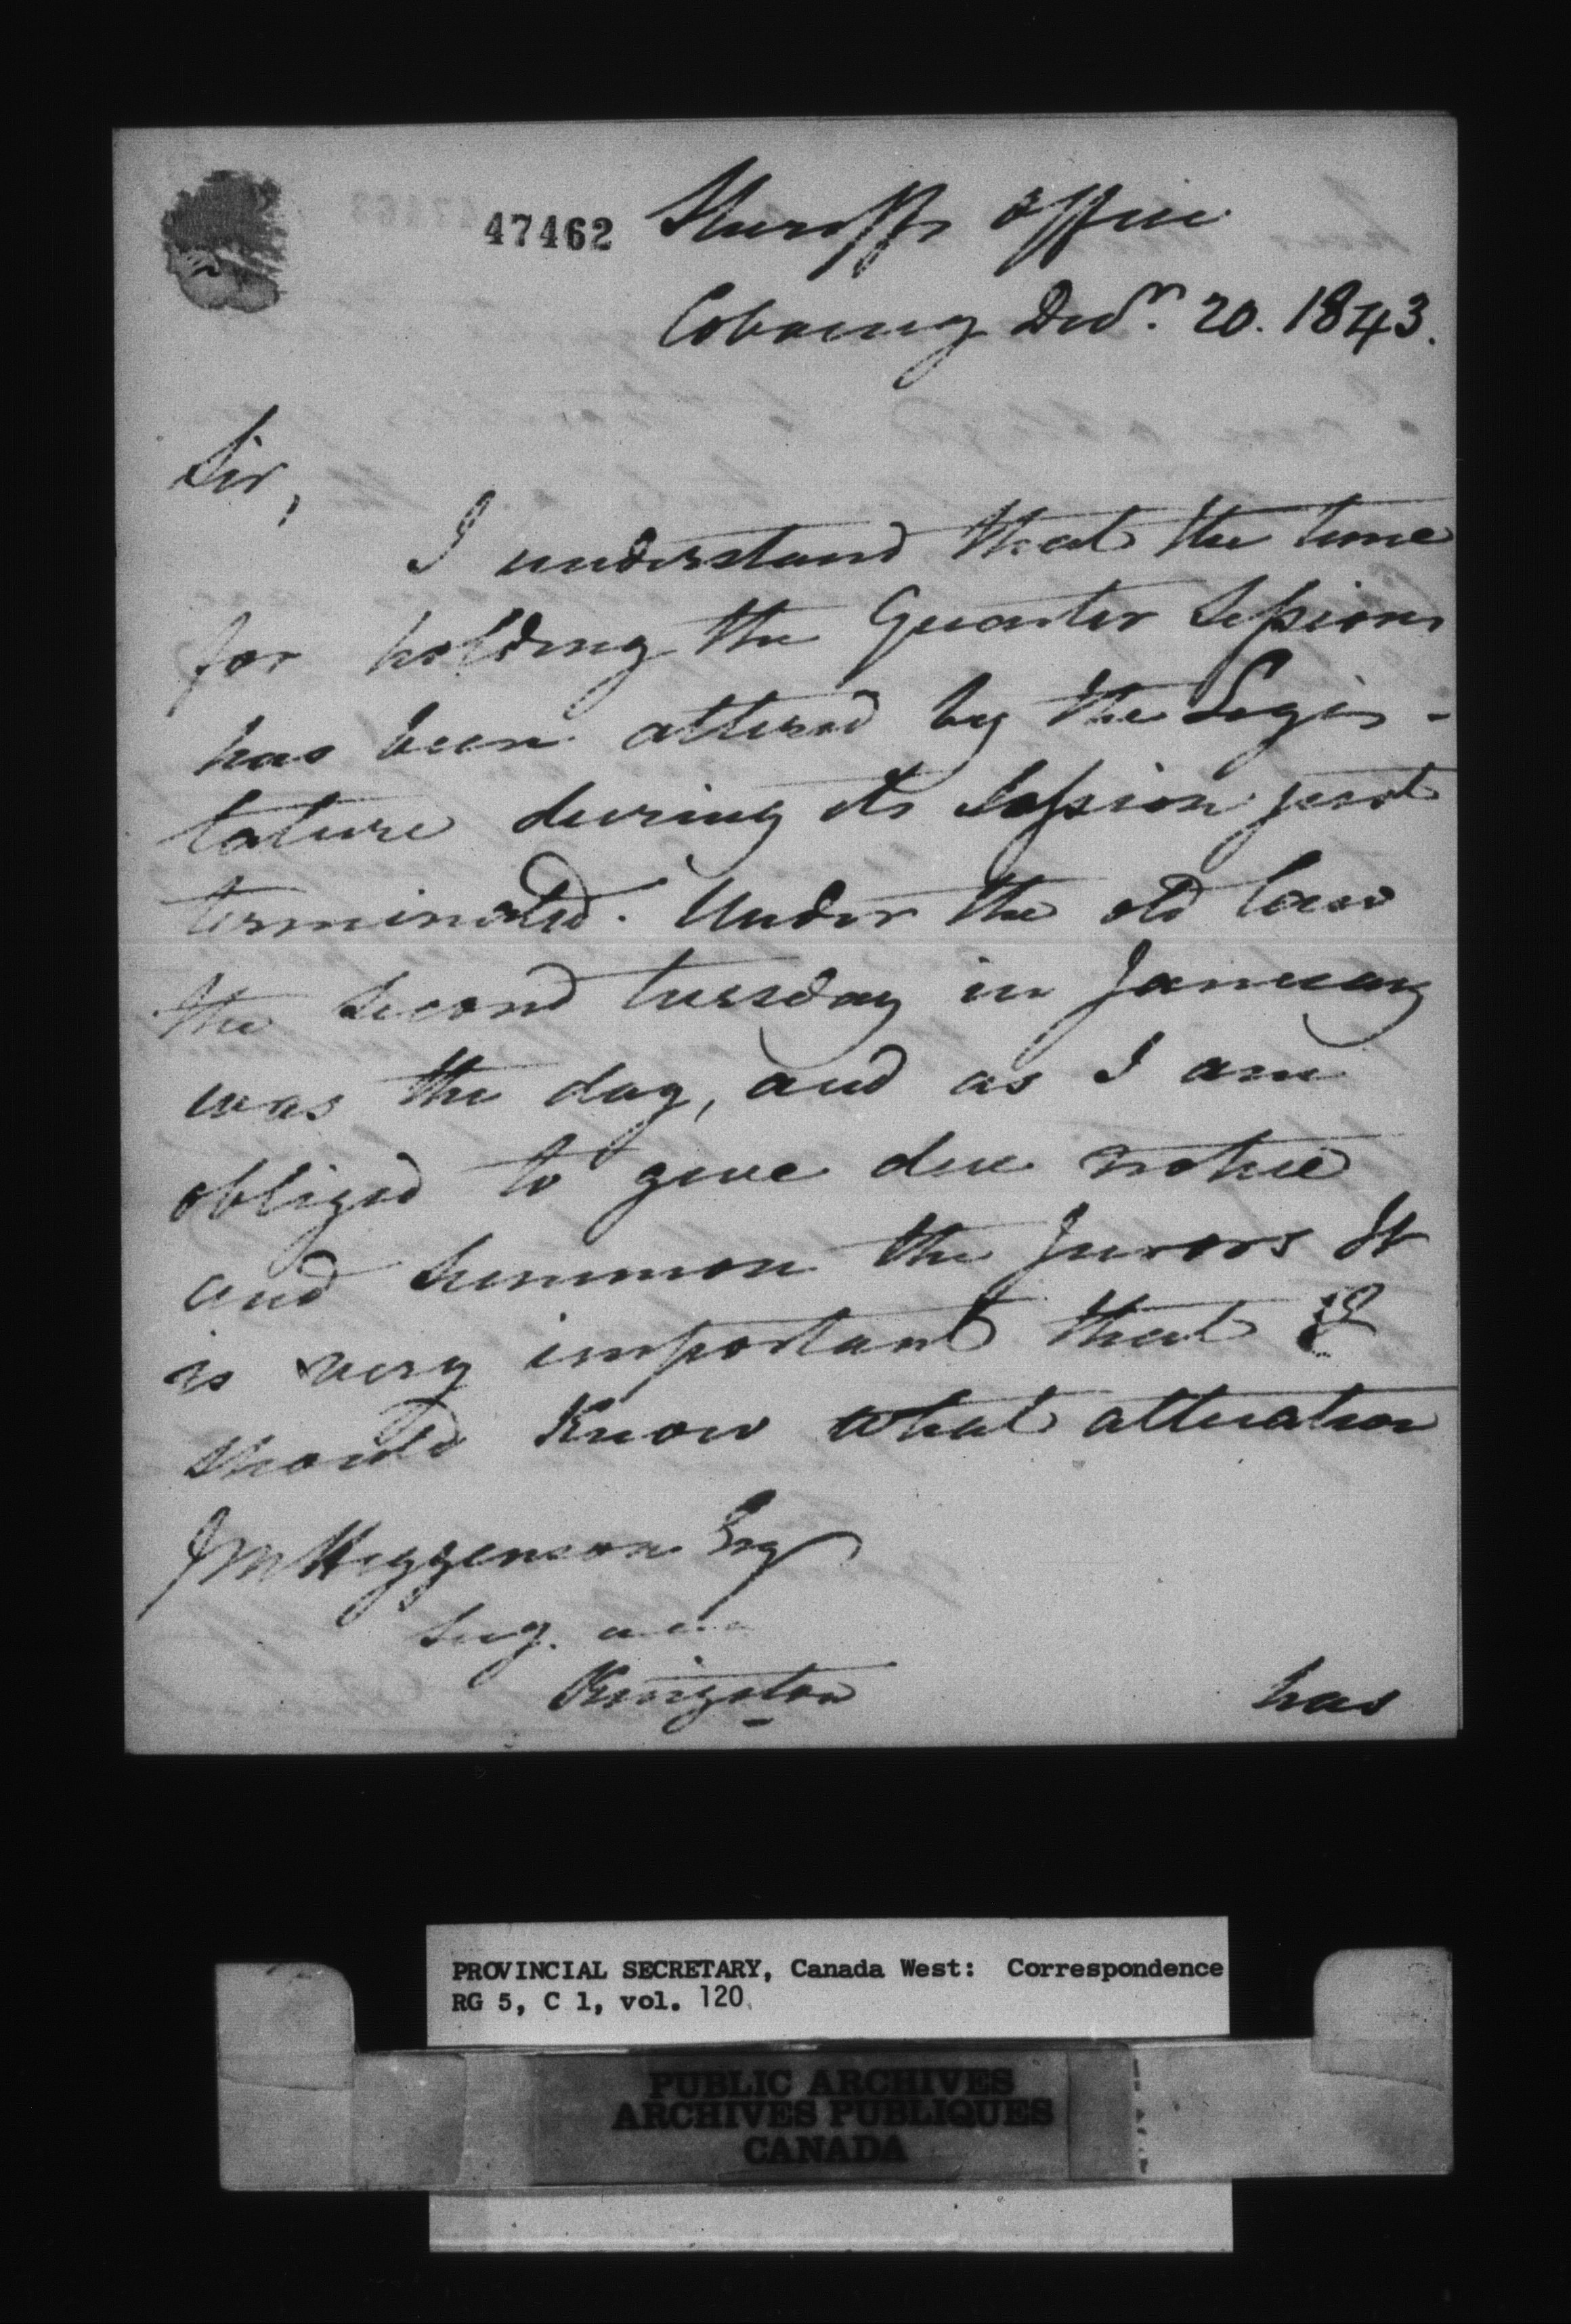 47462
Sheriffs Office
Cobourg Decr. 20. 1843.
Sir,
I understand that the time
for holding the Quarter Sessions
has been altered by the Legis-
lature during its Session just
terminated. Under the old law
the second tuesday in January
was the day, and as I am
obliged to give due notice
and summon the Jurors It
is very important that I
should Know what alteration
J M Higgenson Esq
Kingston
has
PROVINCIAL SECRETARY, Canada West: Correspondence
RG 5, C 1, vol. 120
PUBLIC ARCHIVES
ARCHIVES PUBLIQUES
CANADA